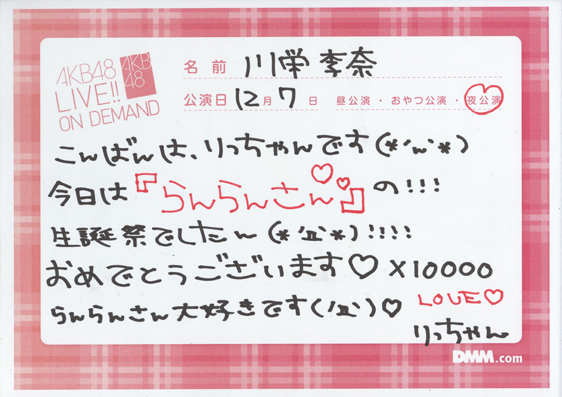 AKB48
LIVE!!
ON DEMAND
AKB
48
名前 川栄李奈
公演日 12月7日 昼公演・おやつ公演・夜公演
こんばんは、りっちゃんです(*´ω`*)
今日は『らんらんさん♡♡』の!!!
生誕祭でしたん(*´Д`*)!!!!
おめでとうございます♡×10000
らんらんさん大好きです(ノД`)♡
LOVE♡
りっちゃん
DMM.com